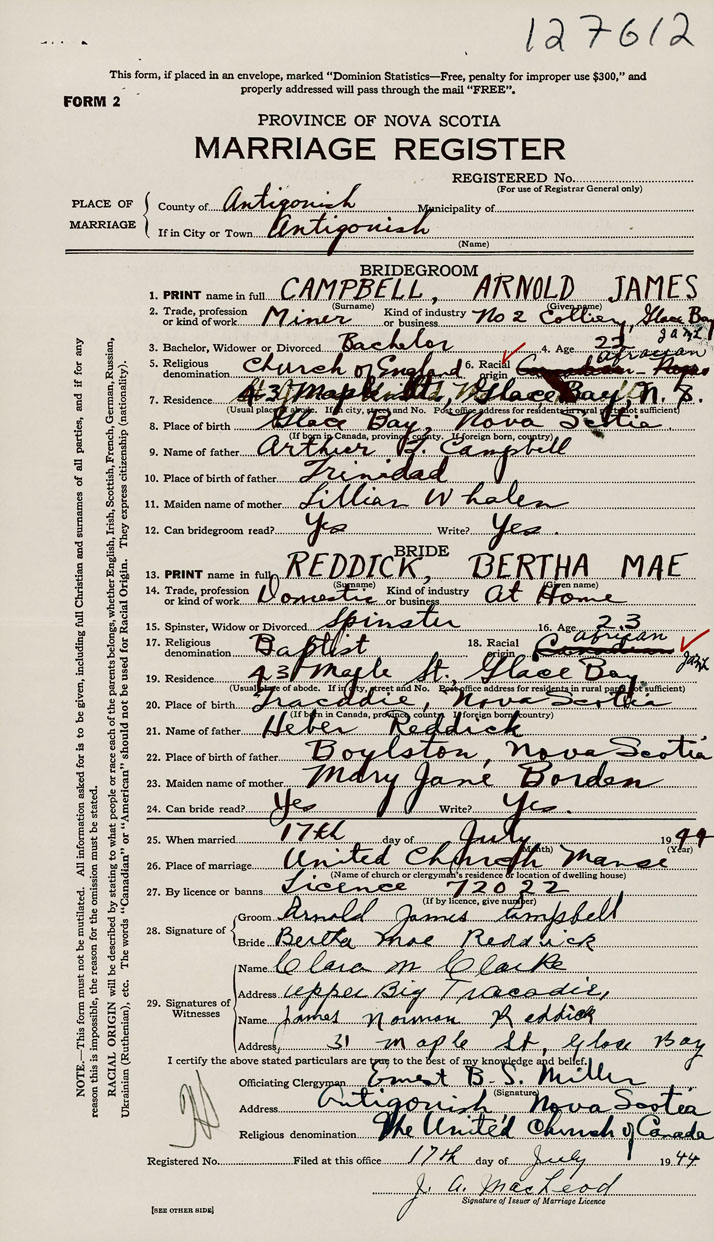 127612
This form, if placed in an envelope, marked "Dominion Statistics—Free, penalty for improper use $300," and
properly addressed will pass through the mail "FREE".
FORM 2
PROVINCE OF NOVA SCOTIA
MARRIAGE REGISTER
REGISTERED No.
(For use of Registrar General only)
PLACE OF MARRIAGE
County of Antigonish Municipality of
If in City or Town Antigonish
(Name)
BRIDEGROOM
1. PRINT name in full CAMPBELL, ARNOLD JAMES
(Surname) (Given name)
2. Trade, profession or kind of work Miner Kind of industry or business No 2 Colliery, Glace Bay
3. Bachelor, Widower or Divorced Bachelor 4. Age 23
5. Religious denomination Church of England 6. Racial origin African
7. Residence 43 Maple St, Glace Bay, N. S.
(Usual place of abode. If in city, street and No. Post office address for residents in rural parts not sufficient)
8. Place of birth Glace Bay, Nova Scotia
(If born in Canada, province, county. If foreign born, country)
9. Name of father Arthur Campbell
10. Place of birth of father Trinidad
11. Maiden name of mother Lillian Whalen
12. Can bridegroom read? Yes Write? Yes.
BRIDE
13. PRINT name in full REDDICK, BERTHA MAE
(Surname) (Given name)
14. Trade, profession or kind of work Domestic Kind of industry or business At Home
15. Spinster, Widow or Divorced Spinster 16. Age 23
17. Religious denomination Baptist 18. Racial origin African Canadian
19. Residence 43 Maple St., Glace Bay
(Usual place of abode. If in city, street and No. Post office address for residents in rural parts not sufficient)
20. Place of birth Tracadie, Nova Scotia
(If born in Canada, province, county. If foreign born, country)
21. Name of father Heber Reddick
22. Place of birth of father Boylston, Nova Scotia
23. Maiden name of mother Mary Jane Borden
24. Can bride read? Yes Write? Yes.
25. When married 17th day of July 1944
(Month) (Year)
26. Place of marriage United Church Manse
(Name of church or clergyman's residence or location of dwelling house)
27. By licence or banns Licence 72022
(If by licence, give number)
28. Signature of
Groom Arnold James Campbell
Bride Bertha Mae Reddick
29. Signatures of Witnesses
Name Clara M Clarke
Address Upper Big Tracadie,
Name James Norman Reddick
Address 31 Maple St, Glace Bay
I certify the above stated particulars are true to the best of my knowledge and belief.
Officiating Clergyman Ernest B. S. Miller
(Signature)
Address Antigonish Nova Scotia
Religious denomination The United Church of Canada
Registered No. Filed at this office 17th day of July 1944
J. A. MacLeod
Signature of Issuer of Marriage Licence
[SEE OTHER SIDE]
NOTE.—This form must not be mutilated. All information asked for is to be given, including full Christian and surnames of all parties, and if for any
reason this is impossible, the reason for the omission must be stated.
RACIAL ORIGIN will be described by stating to what people or race each of the parents belongs, whether English, Irish, Scottish, French, German, Russian,
Ukrainian (Ruthenian), etc. The words "Canadian" or "American" should not be used for Racial Origin. They express citizenship (nationality).